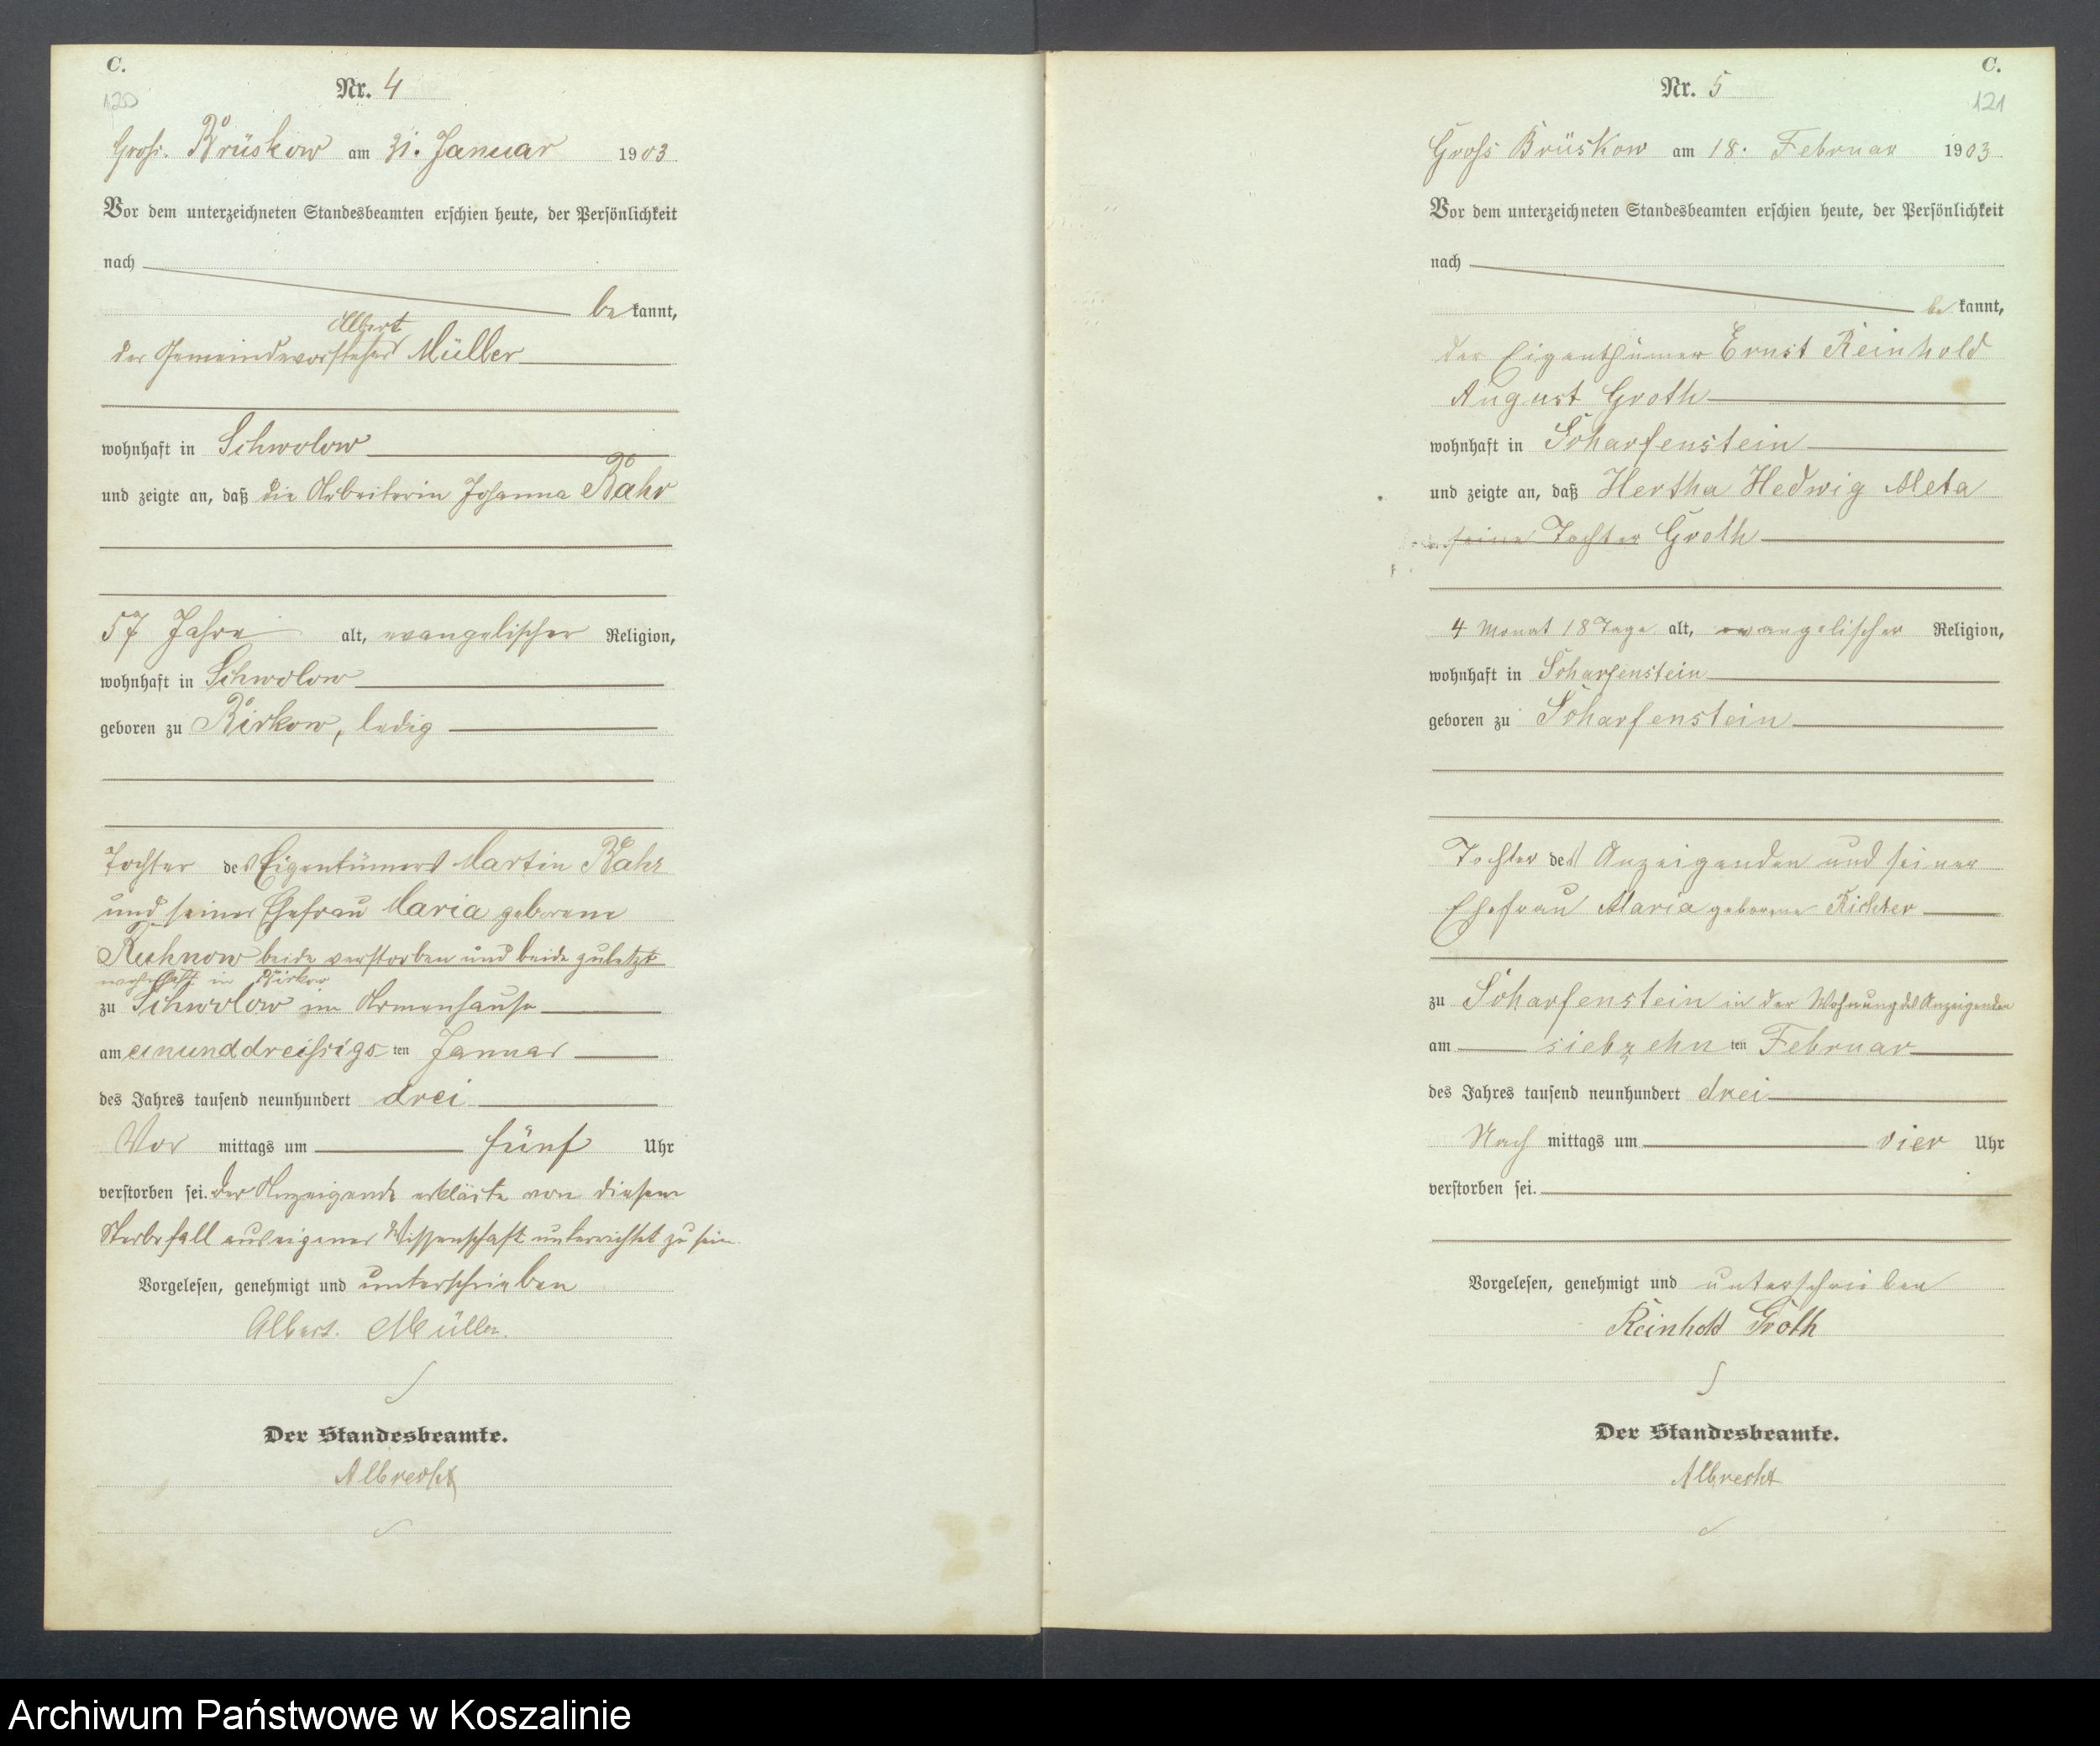 C.
120
Nr. 4
Groß. Brüskow am 31. Januar 1903
Vor dem unterzeichneten Standesbeamten erschien heute, der Persönlichkeit
nach
be kannt,
Albert
der Gemeindevorsteher Müller
wohnhaft in Schwolow
und zeigte an, daß die Arbeiterin Johanna Bahr
57 Jahre alt, evangelischer Religion,
wohnhaft in Schwolow
geboren zu Birkow, ledig
Tochter des Eigentümers Martin Bahr
und seiner Ehefrau Maria geborene
beide verstorben und beide zuletzt
wohnhaft in Birkow
zu Schwolow im Armenhause
am einunddreißigs ten Januar
des Jahres tausend neunhundert drei
Vor mittags um fünf Uhr
verstorben sei. Der Anzeigende erklärte von diesem
Sterbefall aus eigener Wissenschaft unterrichtet zu sein.
Vorgelesen, genehmigt und unterschrieben
Albert. Müller.
Der Standesbeamte.
Albrecht
C.
121
Nr. 5
Groß Brüskow am 18. Februar 1903
Vor dem unterzeichneten Standesbeamten erschien heute, der Persönlichkeit
nach
be kannt,
der Eigenthümer Ernst Reinhold
August Groth
wohnhaft in Scharfenstein
und zeigte an, daß Hertha Hedwig Meta
seine Tochter Groth
4 Monat 18 Tage alt, evangelischer Religion,
wohnhaft in Scharfenstein
geboren zu Scharfenstein
Tochter des Anzeigenden und seiner
Ehefrau Maria geborene Richter
zu Scharfenstein in der Wohnung des Anzeigenden
am siebzehn ten Februar
des Jahres tausend neunhundert drei
Nach mittags um vier Uhr
verstorben sei.
Vorgelesen, genehmigt und unterschrieben
Reinhold Groth
Der Standesbeamte.
Albrecht
Archiwum Państwowe w Koszalinie